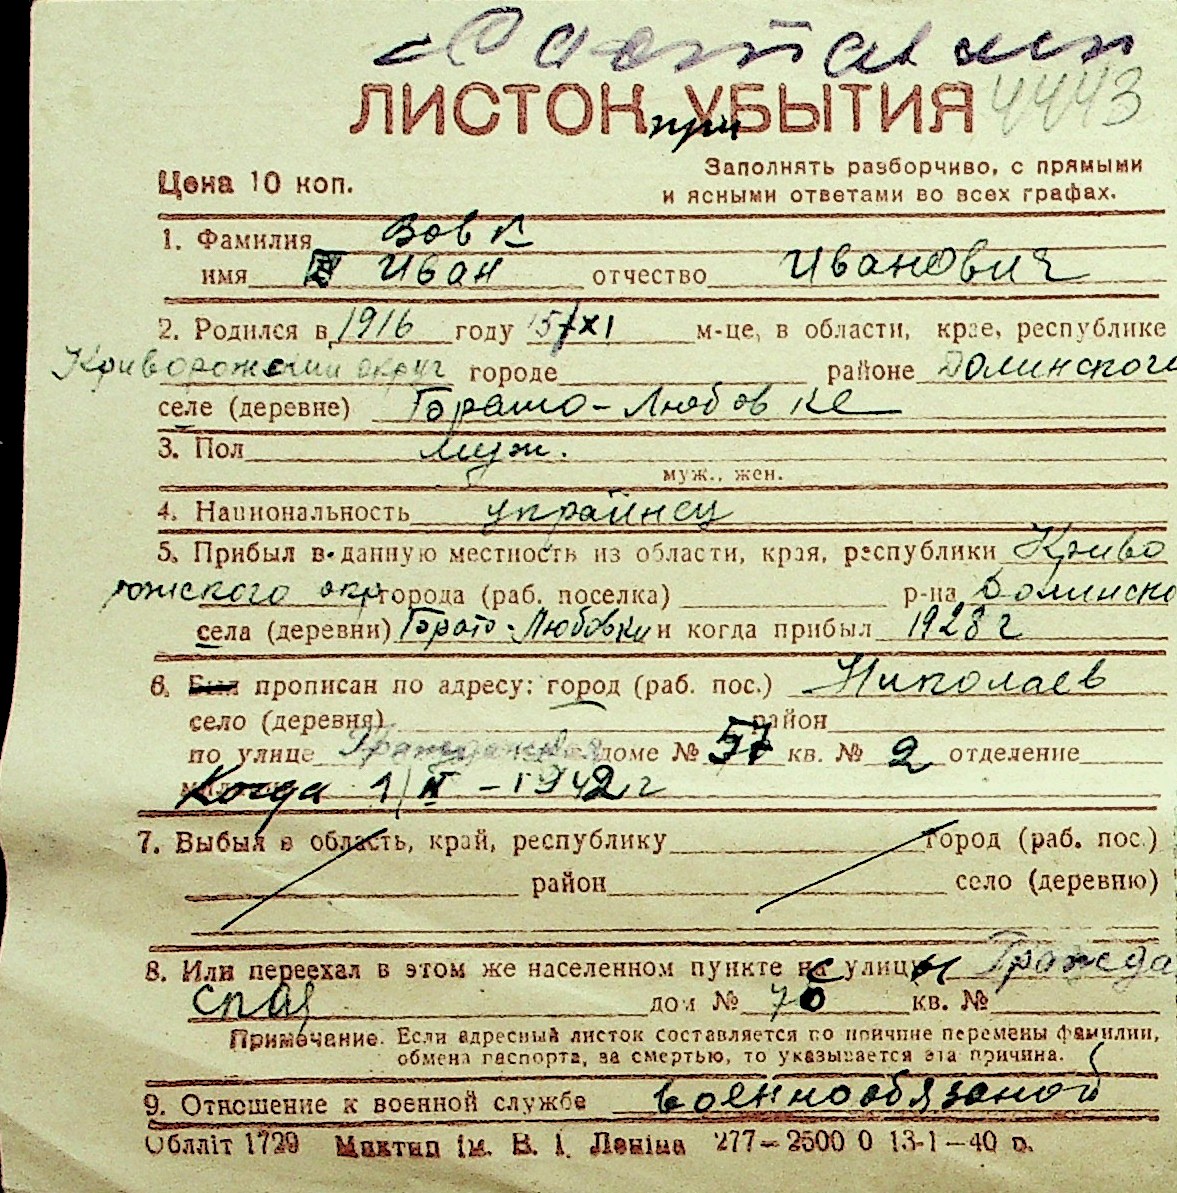 ЛИСТОК при УБЫТИЯ 4443
Цена 10 коп.
Заполнять разборчиво, с прямыми
и ясными ответами во всех графах.
1. Фамилия Вовк
имя Иван отчество Иванович
2. Родился в 1916 году 15/XI м-це, в области, крае, республике
Криворожский округ городе районе Долинского
селе (деревне) Горато-Любовке
3. Пол муж.
муж., жен.
4. Национальность украинец
5. Прибыл в данную местность из области, края, республики Криво
рожского окр города (раб. поселка) р-на Долинско
села (деревни) Горато-Любовки и когда прибыл 1928 г
6. Был прописан по адресу: город (раб. пос.) Николаев
село (деревня) район
по улице Гражданская доме № 57 кв. № 2 отделение
Когда 1/II - 1942 г
7. Выбыл в область, край, республику город (раб. пос.)
район село (деревню)
8. Или переехал в этом же населенном пункте с улицы Гражда
нская дом № 70 кв. №
Примечание. Если адресный листок составляется по причине перемены фамилии,
обмена паспорта, за смертью, то указывается эта причина.
9. Отношение к военной службе военнообязаной
Облліт 1729 Миктип ім. В. І. Леніна 277—2500 0 13-1—40 р.